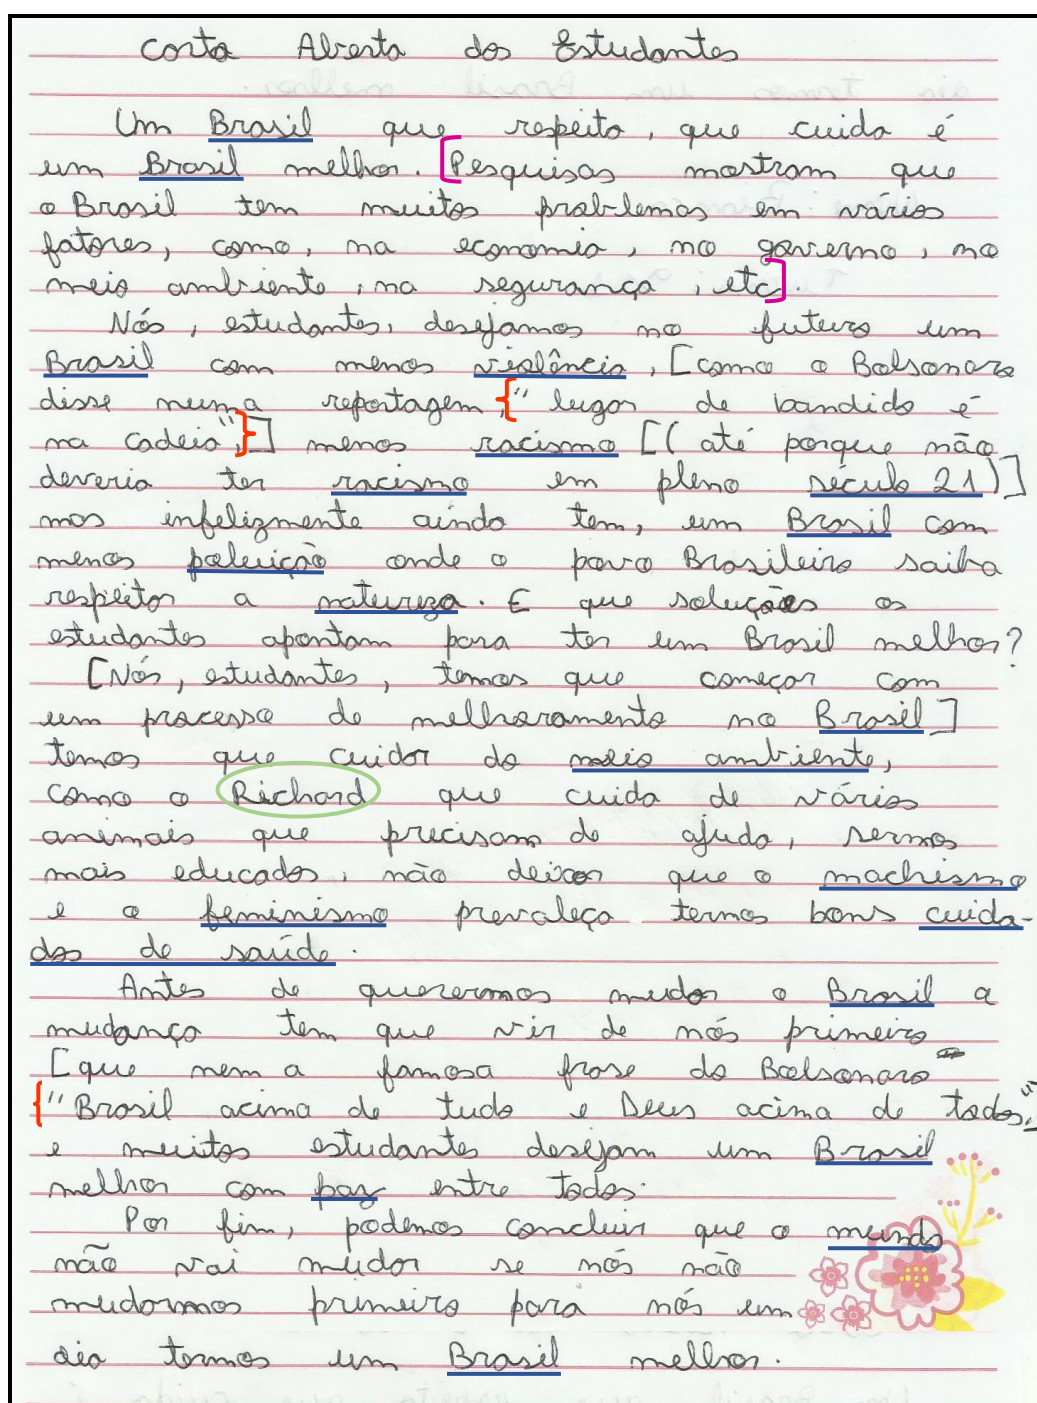 Carta Aberta dos Estudantes
Um Brasil que respeita, que cuida é
um Brasil melhor. [Pesquisas mostram que
o Brasil tem muitos problemas em vários
fatores, como, na economia, no governo, no
meio ambiente, na segurança, etc].
Nós, estudantes, desejamos no futuro um
Brasil com menos violência, [como o Bolsonaro
disse numa reportagem, {" lugar de bandido é
na cadeia",}] menos racismo [( até porque não
deveria ter racismo em pleno século 21)]
mas infelizmente ainda tem, um Brasil com
menos poluição onde o povo Brasileiro saiba
respeitar a natureza. E que soluções os
estudantes apontam para ter um Brasil melhor?
[Nós, estudantes, temos que começar com
um processo de melhoramento no Brasil]
temos que cuidar do meio ambiente,
como o Richard que cuida de vários
animais que precisam de ajuda, sermos
mais educados, não deixar que o machismo
e o feminismo prevaleça termos bons cuida-
dos de saúde.
Antes de querermos mudar o Brasil a
mudança tem que vir de nós primeiro
[que nem a famosa frase do Bolsonaro
{"Brasil acima de tudo e Deus acima de todos,"
e muitos estudantes desejam um Brasil
melhor com paz entre todos.
Por fim, podemos concluir que o mundo
não vai mudar se nós não
mudarmos primeiro para nós um
dia termos um Brasil melhor.